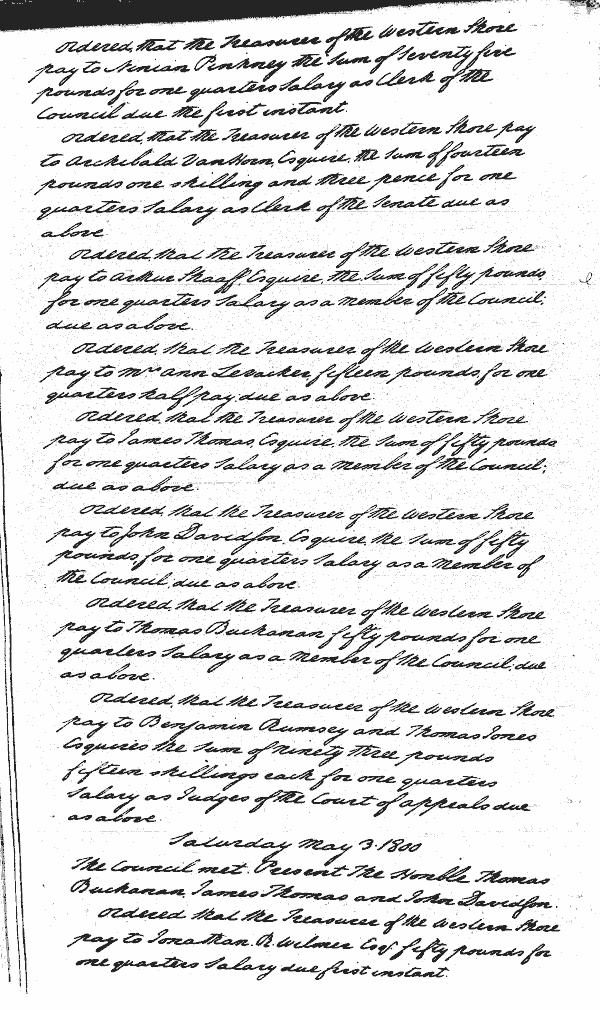 Ordered, that the Treasurer of the Western Shore
pay to Ninian Pinkney the sum of seventy five
pounds for one quarters salary as Clerk of the
Council due the first instant.
Ordered, that the Treasurer of the Western Shore pay
to Archibald VanHorn, Esquire, the sum of fourteen
pounds one shilling and three pence for one
quarters salary as Clerk of the Senate due as
above
Ordered, that the Treasurer of the Western Shore
pay to Arthur Shaaff, Esquire, the sum of fifty pounds
for one quarters salary as a member of the Council;
due as above.
Ordered, that the Treasurer of the Western Shore
pay to Mrs Ann fifteen pounds, for one
quarters half pay, due as above
Ordered, that the Treasurer of the Western Shore
pay to James Thomas, Esquire, the sum of fifty pounds
for one quarters salary as a member of the Council;
due as above.
Ordered, that the Treasurer of the Western Shore
pay to John Davidson, Esquire, the sum of fifty
pounds, for one quarters salary as a member of
the Council, due as above.
Ordered, that the Treasurer of the Western Shore
pay to Thomas Buchanan fifty pounds for one
quarters salary as a member of the Council, due
as above.
Ordered, that the Treasurer of the Western Shore
pay to Benjamin Rumsey and Thomas Jones
Esquires the sum of ninety three pounds
fifteen shillings each for one quarters
salary as Judges of the Court of appeals due
as above.
Saturday May 3. 1800
The Council met. Present The Honble Thomas
Buchanan, James Thomas and John Davidson.
Ordered that the Treasurer of the Western Shore
pay to Jonathan R. Wilmer Esqr fifty pounds for
one quarters salary due first instant.